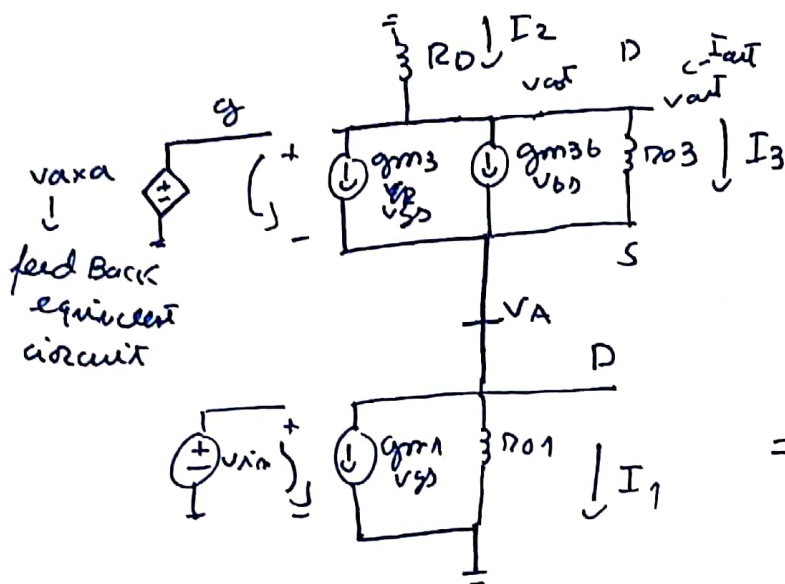 RD
I2
D
Iout
vout
vout
g
+
-
gm3
vgs
gm3b
vbs
ro3
I3
S
vaxa
↓
feed Back
equivalent
circuit
VA
D
vin
+
gm1
vgs
ro1
I1
=